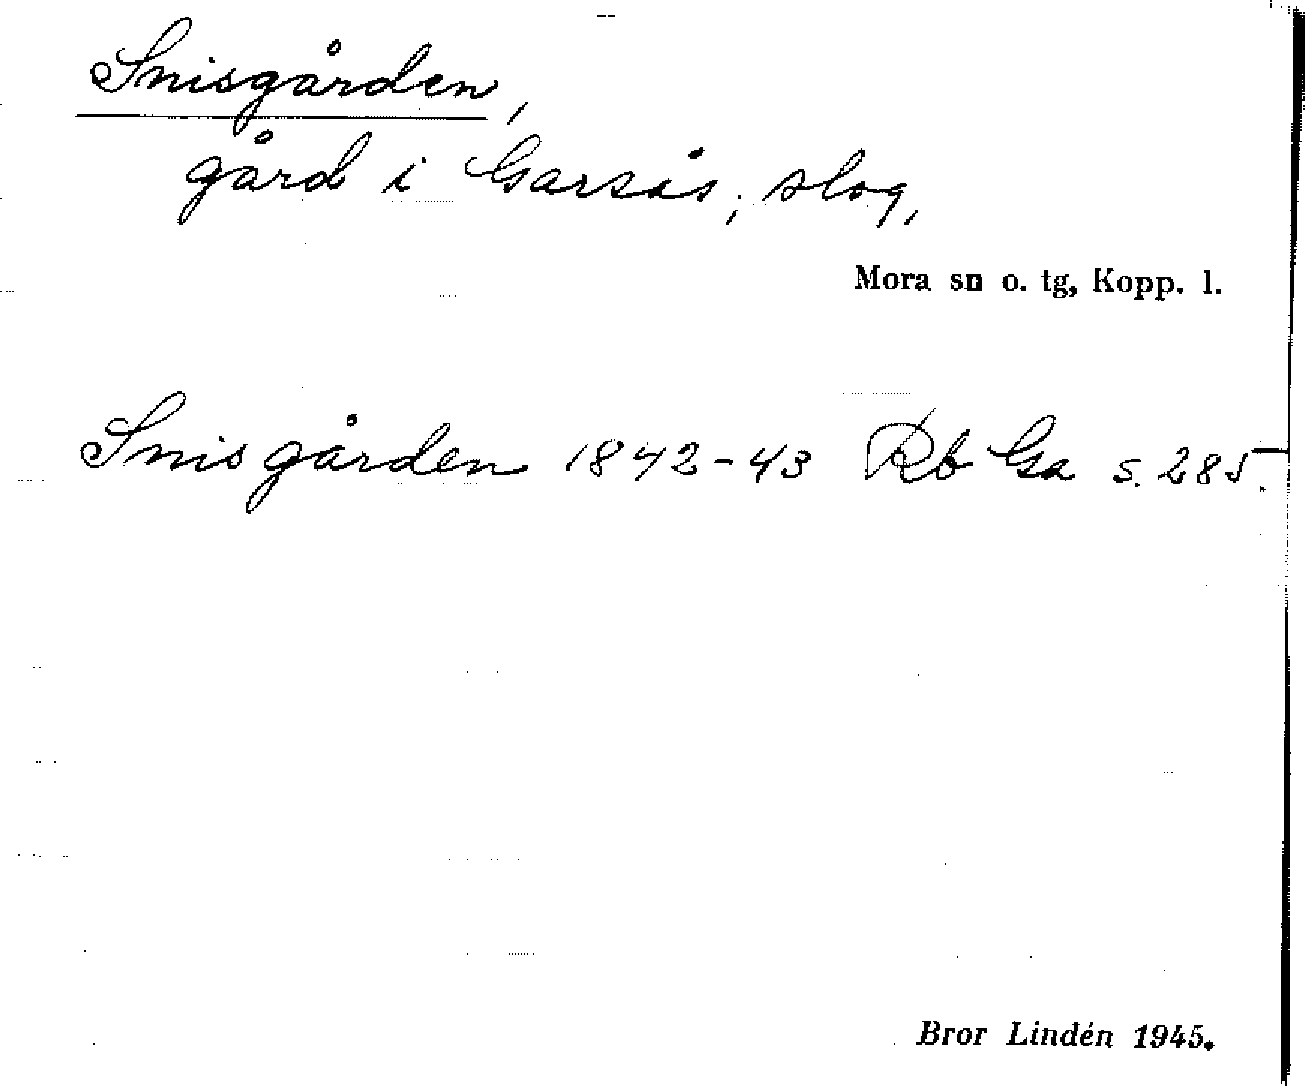 Snisgården,
gård i Garsås; slog,
Mora sn o. tg, Kopp. l.
Snisgården 1842-43 Rb Ga s. 285.
Bror Lindén 1945.